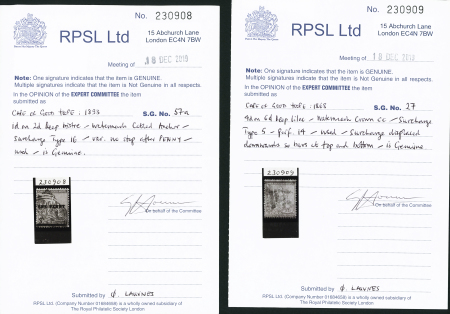 No. 230908
RPSL Ltd
15 Abchurch Lane
London EC4N 7BW
Meeting of 18 DEC 2019
Note: One signature indicates that the item is GENUINE.
Multiple signatures indicate that the item is Not Genuine in all respects.
In the OPINION of the EXPERT COMMITTEE the item
submitted as
CAPE OF GOOD HOPE: 1893 S.G. No. 57a
1d on 2d deep bistre - Watermark Cabled Anchor -
Surcharge Type 16 - var. no stop after PENNY -
Used - is Genuine.
230908
On behalf of the Committee
Submitted by Ø. LAUVNES
RPSL Ltd. (Company Number 01684658) is a wholly owned subsidiary of
The Royal Philatelic Society London
No. 230909
RPSL Ltd
15 Abchurch Lane
London EC4N 7BW
Meeting of 18 DEC 2019
Note: One signature indicates that the item is GENUINE.
Multiple signatures indicate that the item is Not Genuine in all respects.
In the OPINION of the EXPERT COMMITTEE the item
submitted as
CAPE OF GOOD HOPE: 1868 S.G. No. 27
4d on 6d deep lilac - Watermark Crown CC - Surcharge
Type 5 - perf. 14 - Used - Surcharge displaced
downwards so bars at top and bottom - is Genuine
230909
On behalf of the Committee
Submitted by Ø. LAUVNES
RPSL Ltd. (Company Number 01684658) is a wholly owned subsidiary of
The Royal Philatelic Society London